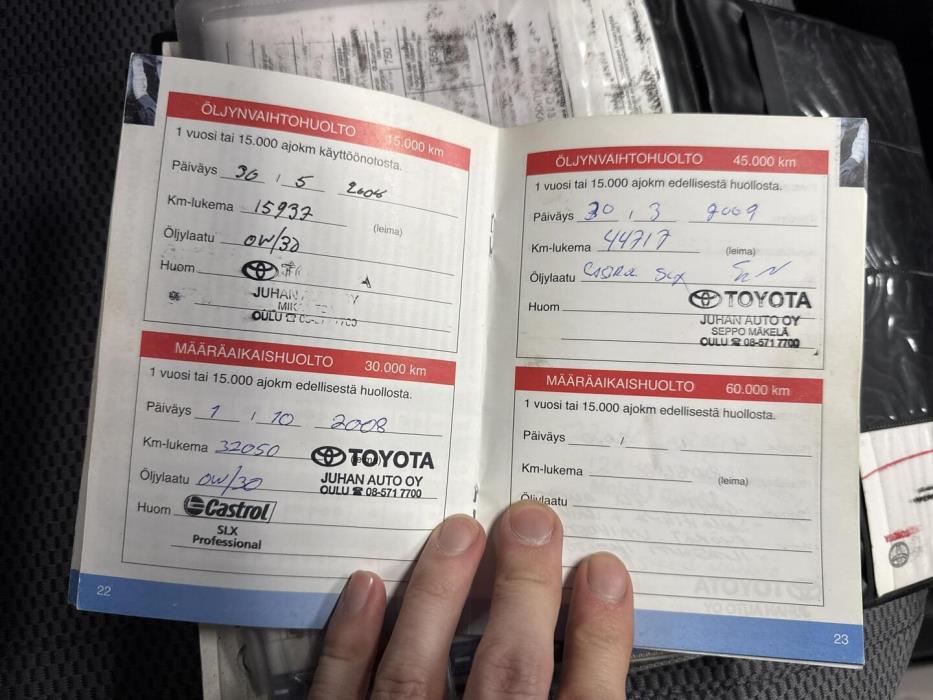 ÖLJYNVAIHTOHUOLTO 15.000 km
1 vuosi tai 15.000 ajokm käyttöönotosta.
Päiväys 30 / 5
Km-lukema 15937
(leima)
Öljylaatu 0W/30
Huom
JUHAN
OULU ☎
MÄÄRÄAIKAISHUOLTO 30.000 km
1 vuosi tai 15.000 ajokm edellisestä huollosta.
Päiväys 1 / 10 2008
Km-lukema 32050
TOYOTA
JUHAN AUTO OY
OULU ☎ 08-571 7700
Öljylaatu 0W/30
Huom Castrol
SLX
Professional
22
ÖLJYNVAIHTOHUOLTO 45.000 km
1 vuosi tai 15.000 ajokm edellisestä huollosta.
Päiväys 30 / 3 2009
Km-lukema 44717
(leima)
Öljylaatu SLX
Huom
TOYOTA
JUHAN AUTO OY
SEPPO MÄKELÄ
OULU ☎ 08-571 7700
MÄÄRÄAIKAISHUOLTO 60.000 km
1 vuosi tai 15.000 ajokm edellisestä huollosta.
Päiväys /
Km-lukema
(leima)
Öljylaatu
23